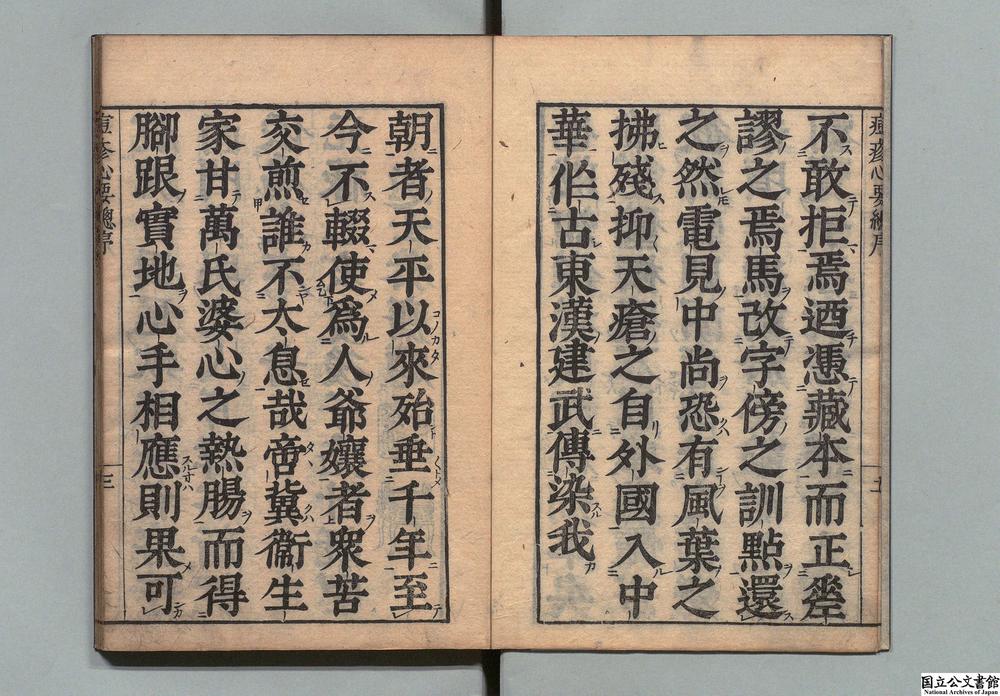 不敢拒焉迺憑藏本而正嵳
謬之焉馬改字傍之訓點還
之然電見中尚恐有風葉之
拂殘抑天瘡之自外國入中
華作古東漢建武傳染我
朝者天平以來殆垂千年至
今不輟使爲人爺孃者衆苦
交煎誰不大息哉帝冀衞生
家甘萬氏婆心之熱腸而得
腳跟實地心手相應則果可
痘疹心要總序
三
国立公文書館
National Archives of Japan